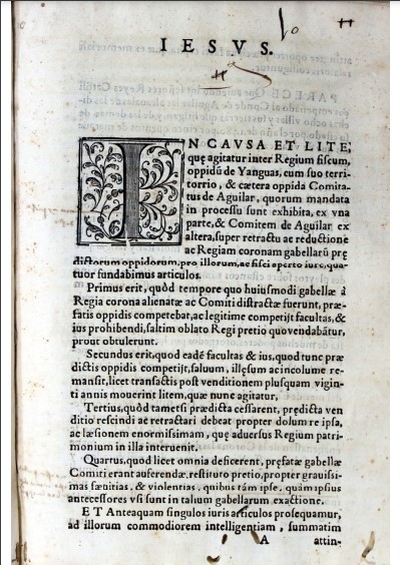 IESVS.
IN CAVSA ET LITE,
quę agitatur inter Regium fiscum,
oppidū de Yanguas, cum suo terri-
torrio, & cætera oppida Comita-
tus de Aguilar, quorum mandata
in processu sunt exhibita, ex vna
parte, & Comitem de Aguilar ex
altera, super retractu ac reductione
ac Regiam coronam gabellarū prę
dictorum oppidorum, pro illorum, ac fisci aperto iure, qua-
tuor fundabimus articulos.
Primus erit, quòd tempore quo huiusmodi gabellæ à
Regia corona alienatæ ac Comiti distractæ fuerunt, præ-
fatis oppidis competebat, ac legitime competijt facultas, &
ius prohibendi, saltim oblato Regi pretio quo vendabātur,
prout obtulerunt.
Secundus erit, quod eadē facultas & ius, quod tunc præ
dictis oppidis competijt, saluum, illęsum ac incolume re-
mansit, licet transactis post venditionem plusquam vigin-
ti annis mouerint litem, quæ nunc agitatur,
Tertius, quòd tametsi prædicta cessarent, prędicta ven
ditio rescindi ac retractari debeat propter dolum re ipsa,
ac læsionem enormissimam, quę aduersus Regium patri-
monium in illa interuenit.
Quartus, quòd licet omnia deficerent, pręfatæ gabellæ
Comiti erant auferendæ, restituto pretio, propter grauissi-
mas sæuitias, & violentias, quibus tàm ipse, quàm ipsius
antecessores vsi sunt in talium gabellarum exactione.
ET Anteaquam singulos iuris articulos prosequamur,
ad illorum commodiorem intelligentiam, summatim
A attin-